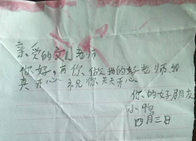 亲爱的文图老师
你好,有你 做我的好老师 我
真开心 祝你天天开心
你的好朋友
小
四月三日